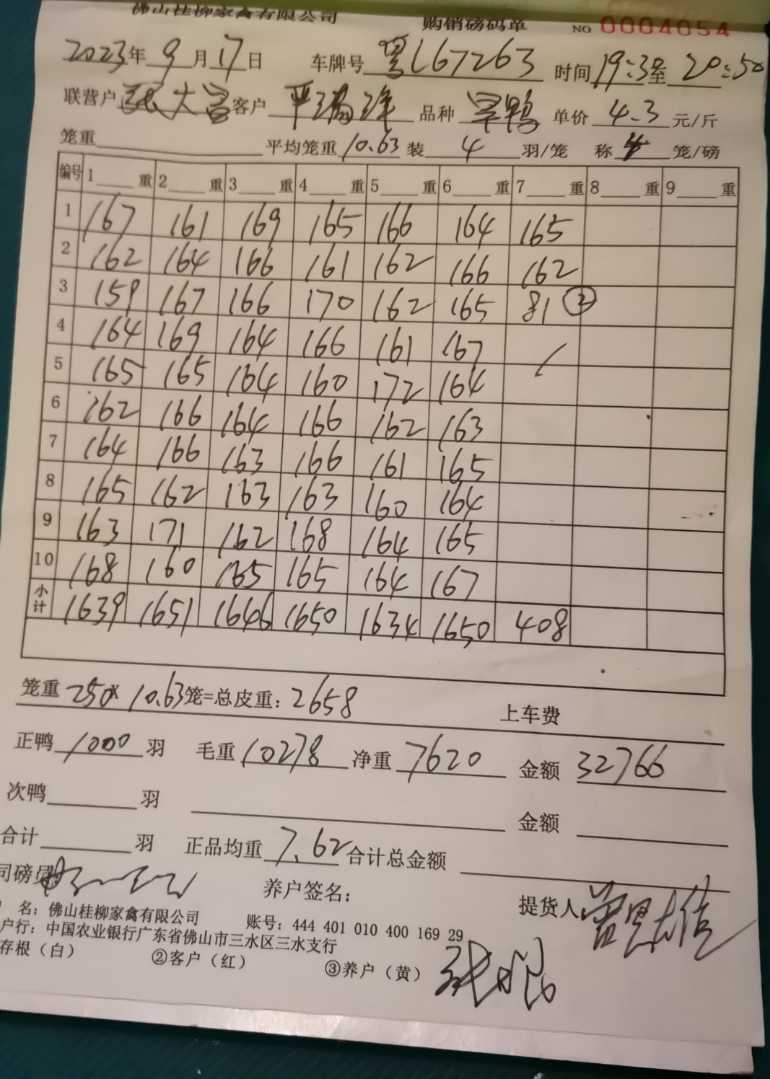 佛山桂柳家禽有限公司 购销磅码单 NO 0004054
2023年 9 月 17 日 车牌号 粤L67263 时间 19:3 至 20:50
联营户 客户 品种 单价 4.3 元/斤
笼重 平均笼重 10.63 装 4 羽/笼 称 4 笼/磅
编号 1 重 2 重 3 重 4 重 5 重 6 重 7 重 8 重 9 重
1 167 161 169 165 166 164 165
2 162 164 166 161 162 166 162
3 159 167 166 170 162 165 81 ②
4 164 169 164 166 161 167
5 165 165 164 160 172 164
6 162 166 164 166 162 163
7 164 166 163 166 161 165
8 165 162 163 163 160 164
9 163 171 162 168 164 165
10 168 160 165 165 164 167
小计 1639 1651 1646 1650 1634 1650 408
笼重 250x 10.63 笼=总皮重: 2658 上车费
正鸭 1000 羽 毛重 10278 净重 7620 金额 32766
次鸭 羽 金额
合计 羽 正品均重 7.62 合计总金额
司磅员 养户签名: 提货人
名: 佛山桂柳家禽有限公司 账号: 444 401 010 400 169 29
户行: 中国农业银行广东省佛山市三水区三水支行
存根(白) ②客户(红) ③养户(黄)